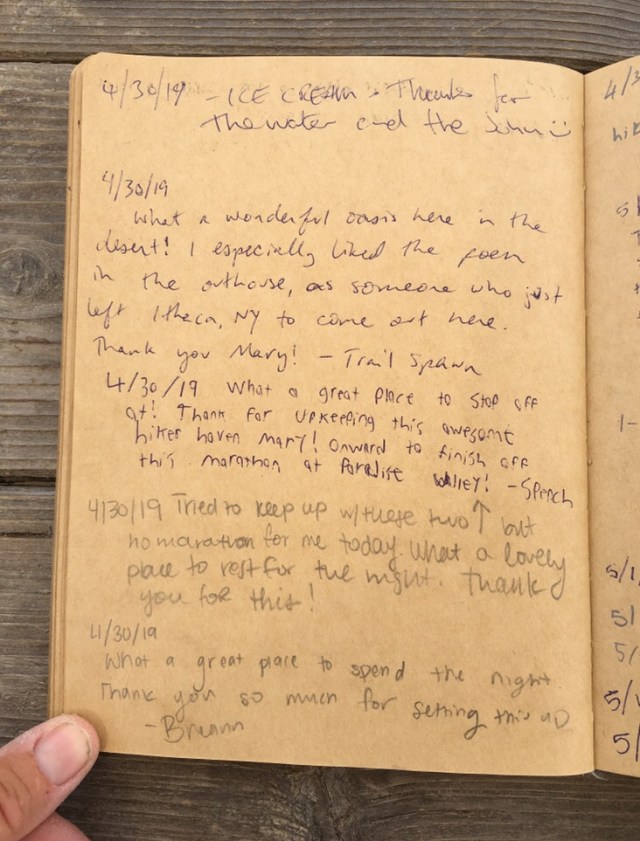 4/30/19 - ICE CREAM - Thanks for
the water and the John :)
4/30/19
What a wonderful oasis here in the
desert! I especially liked the poem
in the outhouse, as someone who just
left Ithaca, NY to come out here.
Thank you Mary! - Trail Spawn
4/30/19 What a great place to stop off
at! Thank for upkeeping this awesome
hiker haven Mary! Onward to finish off
this marathon at Paradise Valley! - Speech
4/30/19 Tried to keep up w/these two ↑ but
no maration for me today. What a lovely
place to rest for the night. Thank
you for this!
4/30/19
What a great place to spend the night.
Thank you so much for setting this up
- Breann
4/3
hik
5/1
5/
5/
5/
5/